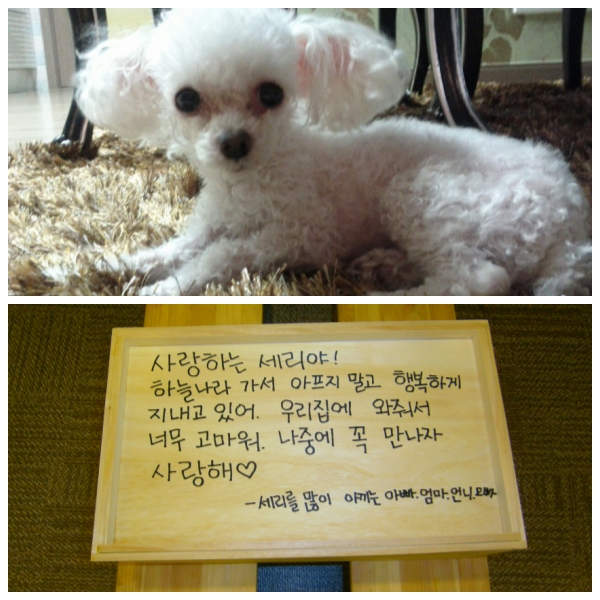 사랑하는 세리야!
하늘나라 가서 아프지 말고 행복하게
지내고 있어. 우리집에 와줘서
너무 고마워. 나중에 꼭 만나자
사랑해♡
-세리를 많이 아끼는 아빠.엄마.언니.오빠